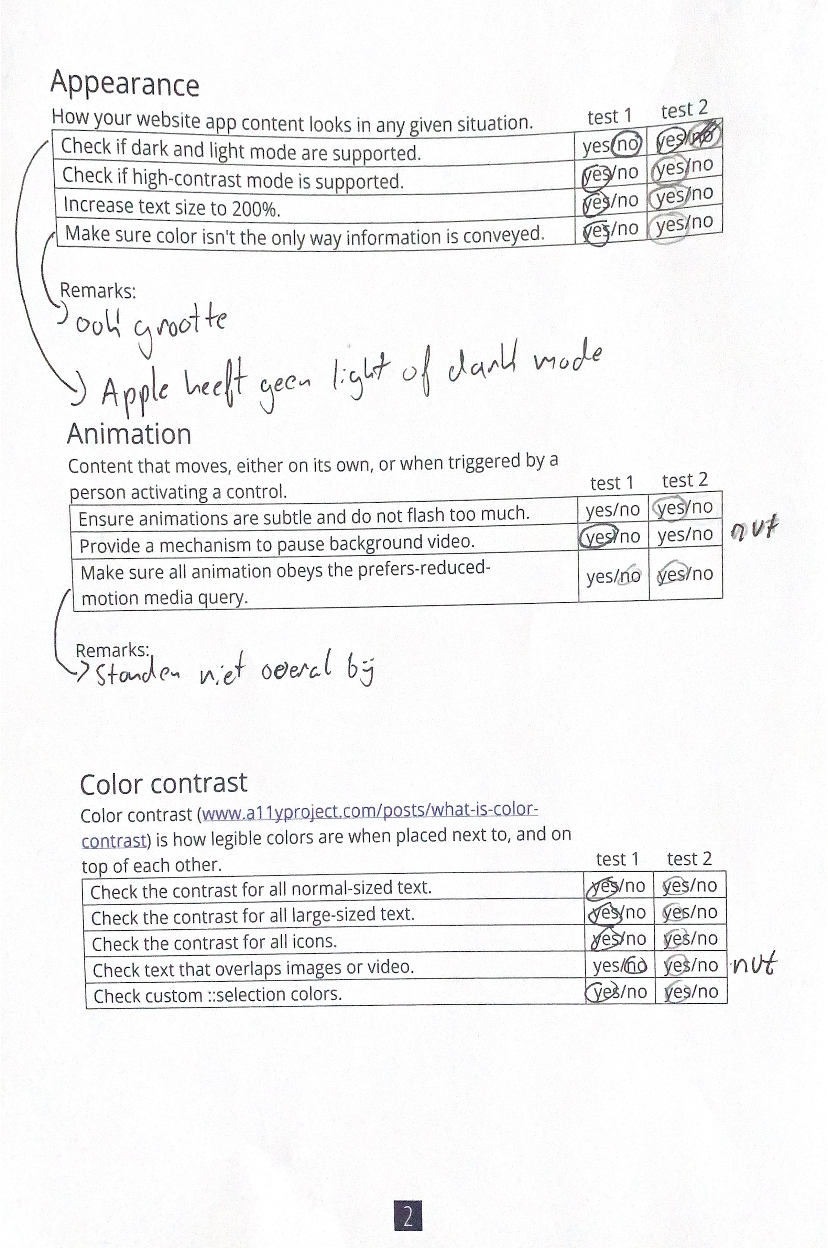 Appearance
How your website app content looks in any given situation. test 1 test 2
Check if dark and light mode are supported. yes/no yes/no
Check if high-contrast mode is supported. yes/no yes/no
Increase text size to 200%. yes/no yes/no
Make sure color isn't the only way information is conveyed. yes/no yes/no
Remarks:
ook grootte
Apple heeft geen light of dark mode
Animation
Content that moves, either on its own, or when triggered by a
person activating a control. test 1 test 2
Ensure animations are subtle and do not flash too much. yes/no yes/no
Provide a mechanism to pause background video. yes/no yes/no nvt
Make sure all animation obeys the prefers-reduced-
motion media query. yes/no yes/no
Remarks:
Standen niet overal bij
Color contrast
Color contrast (www.a11yproject.com/posts/what-is-color-
contrast) is how legible colors are when placed next to, and on
top of each other. test 1 test 2
Check the contrast for all normal-sized text. yes/no yes/no
Check the contrast for all large-sized text. yes/no yes/no
Check the contrast for all icons. yes/no yes/no
Check text that overlaps images or video. yes/no yes/no nvt
Check custom ::selection colors. yes/no yes/no
2